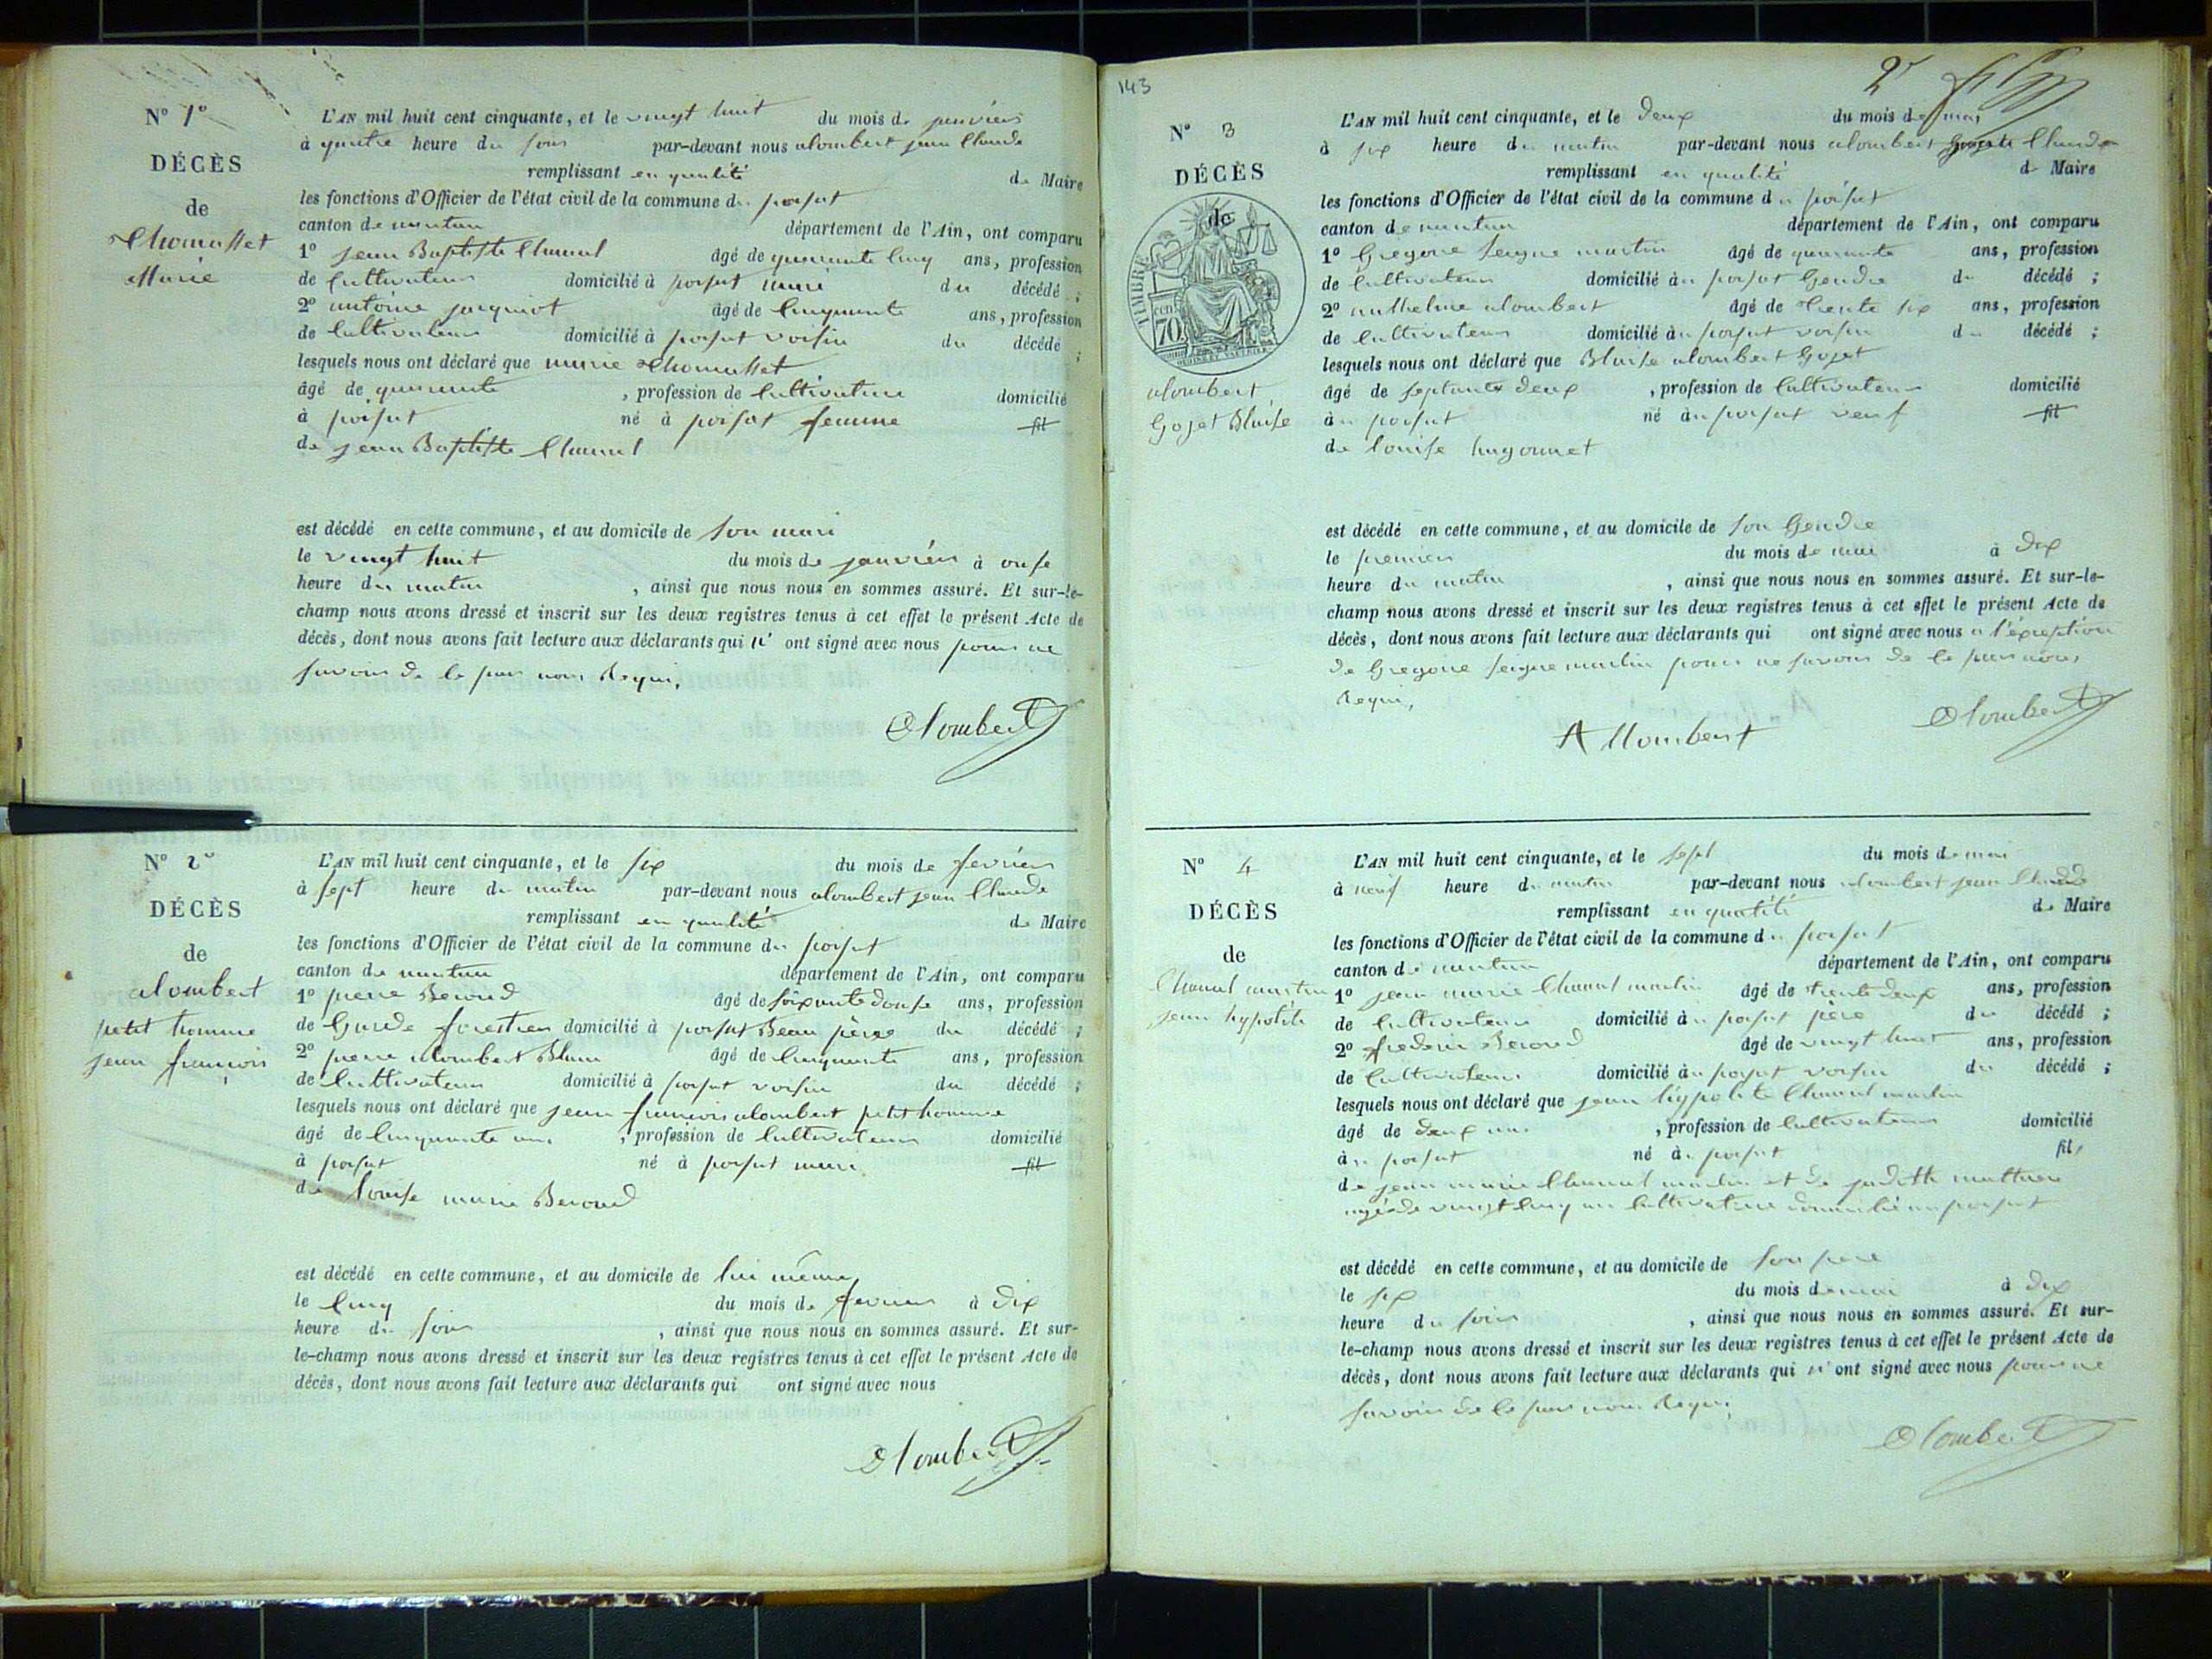 N° 1°
DÉCÈS
de
Thomasset
Marie
L'AN mil huit cent cinquante, et le vingt huit du mois de janvier
à quatre heure du soir par-devant nous alombert jean Claude
remplissant en qualité de Maire
les fonctions d'Officier de l'état civil de la commune du poisat
canton de nantua département de l'Ain, ont comparu
1° jean Baptiste Chanal âgé de quarante cinq ans, profession
de Cultivateur domicilié à poisat mari du décédé ;
2° antoine jacquiot âgé de Cinquante ans, profession
de Cultivateur domicilié à poisat voisin du décédé ;
lesquels nous ont déclaré que marie thomasset
âgé de quarante , profession de Cultivatrice domicilié
à poisat né à poisat femme fil
de jean Baptiste Chanal
est décédé en cette commune, et au domicile de son mari
le vingt huit du mois de janvier à onse
heure du matin , ainsi que nous nous en sommes assuré. Et sur-le-
champ nous avons dressé et inscrit sur les deux registres tenus à cet effet le présent Acte de
décès, dont nous avons fait lecture aux déclarants qui n' ont signé avec nous pour ne
savoir de ce par nous Requi,
Alombert
N° 2°
DÉCÈS
de
alombert
petit homme
jean françois
L'AN mil huit cent cinquante, et le six du mois de fevrier
à sept heure du matin par-devant nous alombert jean Claude
remplissant en qualité de Maire
les fonctions d'Officier de l'état civil de la commune du poisat
canton de nantua département de l'Ain, ont comparu
1° pierre Beroud âgé de soixante douse ans, profession
de Garde forestier domicilié à poisat Beau père du décédé ;
2° pierre alombert Blanc âgé de Cinquante ans, profession
de Cultivateur domicilié à poisat voisin du décédé ;
lesquels nous ont déclaré que jean françois alombert petit homme
âgé de Cinquante ans , profession de Cultivateur domicilié
à poisat né à poisat mari fil
de louise marie Beroud
est décédé en cette commune, et au domicile de lui même
le Cinq du mois de fevrier à dix
heure du soir , ainsi que nous nous en sommes assuré. Et sur-
le-champ nous avons dressé et inscrit sur les deux registres tenus à cet effet le présent Acte de
décès, dont nous avons fait lecture aux déclarants qui ont signé avec nous
Alombert
143
2
N° 3
DÉCÈS
de
TIMBRE
70
alombert
Gojet Blaise
L'AN mil huit cent cinquante, et le deux du mois de mai
à six heure du matin par-devant nous alombert Claude
remplissant en qualité de Maire
les fonctions d'Officier de l'état civil de la commune du poisat
canton de nantua département de l'Ain, ont comparu
1° Gregoire seigne martin âgé de quarante ans, profession
de Cultivateur domicilié au poisat Gendre du décédé ;
2° anthelme alombert âgé de trente six ans, profession
de Cultivateur domicilié au poisat voisin du décédé ;
lesquels nous ont déclaré que Blaise alombert Gojet
âgé de septante deux , profession de Cultivateur domicilié
au poisat né au poisat veuf fil
de louise hugonnet
est décédé en cette commune, et au domicile de son Gendre
le premier du mois de mai à dix
heure du matin , ainsi que nous nous en sommes assuré. Et sur-le-
champ nous avons dressé et inscrit sur les deux registres tenus à cet effet le présent Acte de
décès, dont nous avons fait lecture aux déclarants qui ont signé avec nous a l'éxeption
de Gregoire seigne martin pour ne savoir de ce par nous
Requi,
Alombert
A llombert
N° 4
DÉCÈS
de
Chanal martin
jean hypolite
L'AN mil huit cent cinquante, et le sept du mois de mai
à neuf heure du matin par-devant nous alombert jean Claude
remplissant en qualité de Maire
les fonctions d'Officier de l'état civil de la commune du poisat
canton de nantua département de l'Ain, ont comparu
1° jean marie Chanal martin âgé de trente deux ans, profession
de Cultivateur domicilié au poisat père du décédé ;
2° frederic Beroud âgé de vingt huit ans, profession
de Cultivateur domicilié au poisat voisin du décédé ;
lesquels nous ont déclaré que jean hypolite Chanal martin
âgé de deux ans , profession de Cultivateur domicilié
au poisat né au poisat fils
de jean marie Chanal martin et de judith
agée de vingt Cinq ans Cultivatrice domicilié au poisat
est décédé en cette commune, et au domicile de son pere
le six du mois de mai à dix
heure du soir , ainsi que nous nous en sommes assuré. Et sur-
le-champ nous avons dressé et inscrit sur les deux registres tenus à cet effet le présent Acte de
décès, dont nous avons fait lecture aux déclarants qui n' ont signé avec nous pour ne
savoir de ce par nous Requi,
Alombert